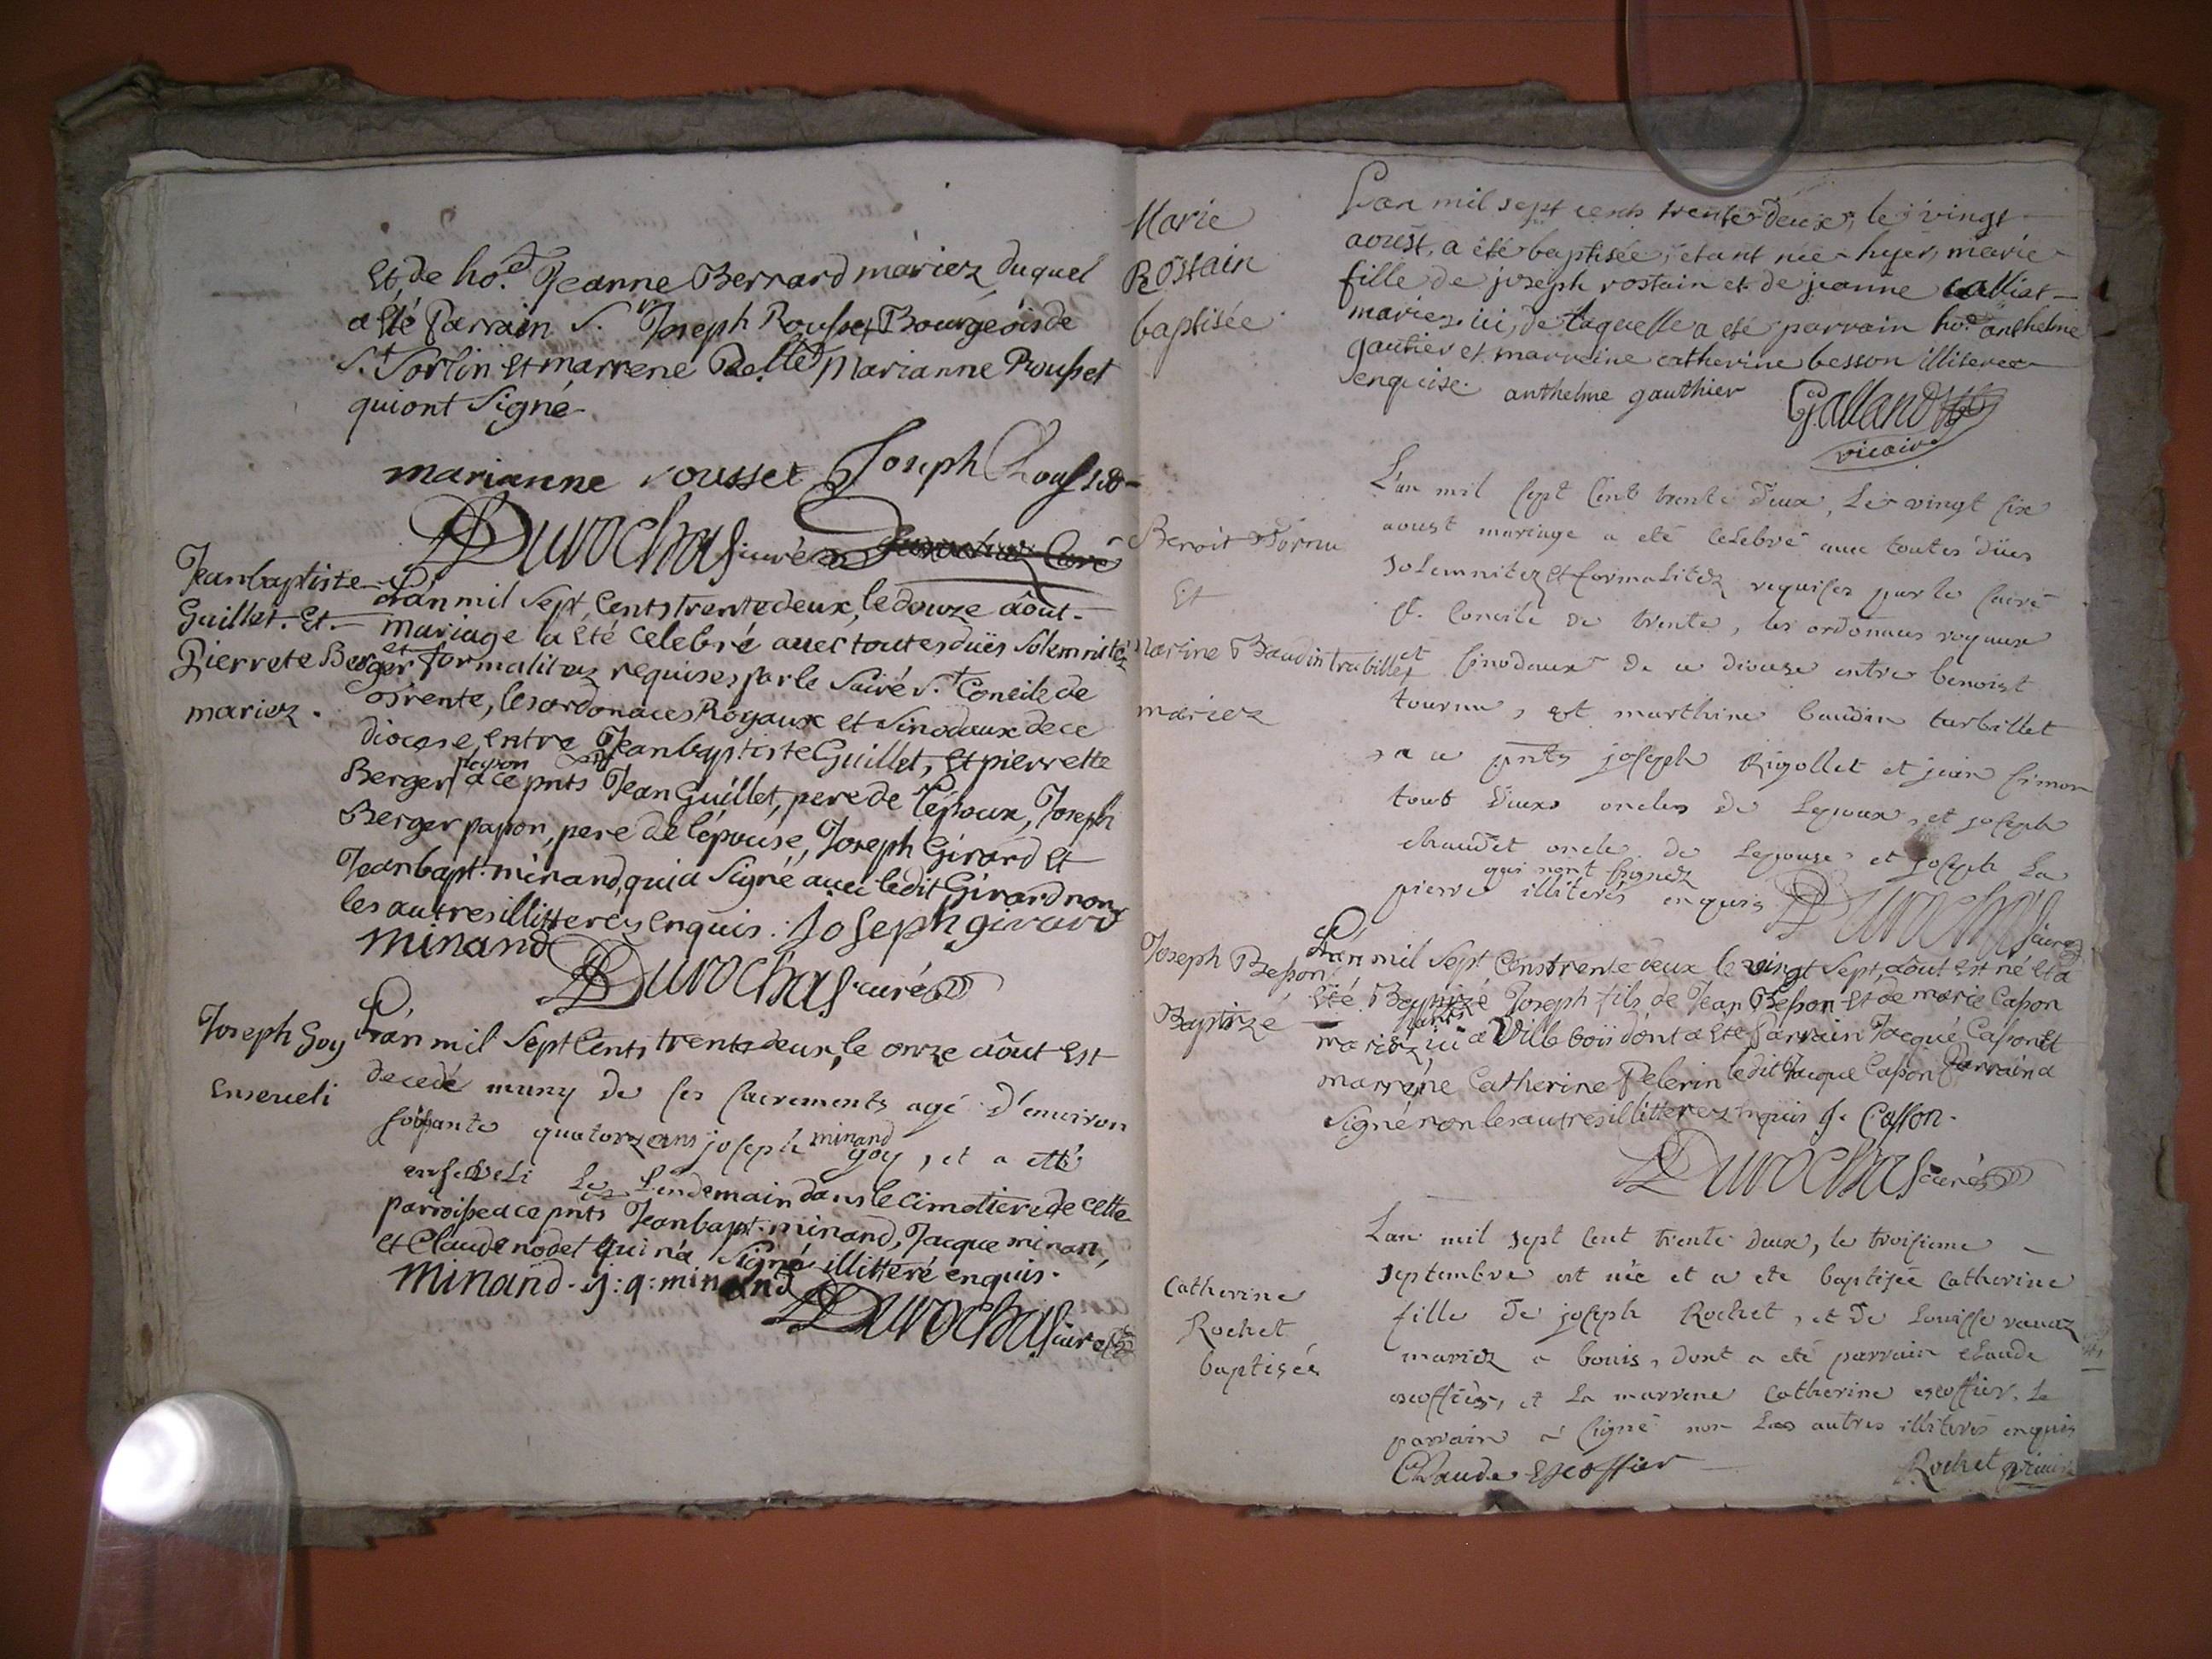 Et de ho.e Jeanne Berrard mariez duquel
a été Parrain S.r Joseph Rousset Bourgeois de
S.t Sorlin et marrene Delle Marianne Rousset
qui ont signé
marianne rousset Joseph Rousset
Durochas curé
Jean baptiste
Guillet. Et.
Pierrete Berger
mariez.
L'an mil sept cents trente deux, le douze aôut
mariage a été celebré avec toutes duës solemnitéz
et formalitez requises par le sacré S.t Concile de
Trente, les ordonaces Royaux et Sinodaux de ce
diocese, entre Jean baptiste Guillet, et pierrette
Berger papon a ce pnts Jean Guillet, pere de l'époux, Joseph
Berger papon, pere de l'épouse, Joseph Girard et
Jean bapt. minand, qui a signé avec ledit Girard non
les autres illitterez enquis. Joseph girard
minand Durochas curé
Joseph Goy
Enseveli
L'an mil sept cents trente deux, le onze aôut est
decedé muny de ses sacrements agé d'environ
soissante quatorz ans joseph minand goy, et a etté
enseveli le lendemain dans le cimetiere de cette
parroisse a ce pnts Jean bapt. minand, Jacque minan,
et Claude nodet qui n'a signé illitteré enquis.
minand. j: q: minand
Durochas curé
Marie
Rostain
baptisée
L'an mil sept cents trente deux, le vingt
aoust, a été baptisée, etant née hyer, marie
fille de joseph rostain et de jeanne
mariez ici, de laquelle a eté parrain ho.e anthelme
gautier et marreine catherine besson illiteree
enquise. anthelme gauthier Galland
vicaire
Benoit Tornu
Et
Martine Baudin trabillet
mariez
L'an mil sept cent trente deux, le vingt six
aoust mariage a eté celebré avec toutes düës
solemnitez et formalitez requises par le sacré
St. Concile de trente, les ordonnaces royaux
et sinodaux de ce diocese entre benoist
tournu, et marthine baudin tarbillet
a ce pnts joseph Rigollet et jean simon
tout deux oncles de lepoux, et joseph
chaudet oncle de lepouse et joseph La
pierre qui nont signez illiterés enquis Durochas curé
Joseph Besson
Baptizé
L'an mil sept cens trente deux le vingt sept, aôut est né et a
été Baptizé Joseph fils de Jean Besson et de marie Casson
mariéz ici a Villeboïi dont a eté Parrain Jacque Casson et
marrene Catherine Pelerin ledit Jacque Casson Parrain a
signé non les autres illitterez enquis J. Casson.
Durochas curé
Catherine
Rochet
baptisée
L'an mil sept cent trente deux, le troisieme
septembre est née et a eté baptisée Catherine
fille de joseph Rochet, et de Louisse ravaz
mariez a bouis, dont a eté parrain claude
escoffier, et la marrene catherine escoffier. le
parrain a signé non les autres illiterés enquis
Claude Escoffier Rochet vicaire